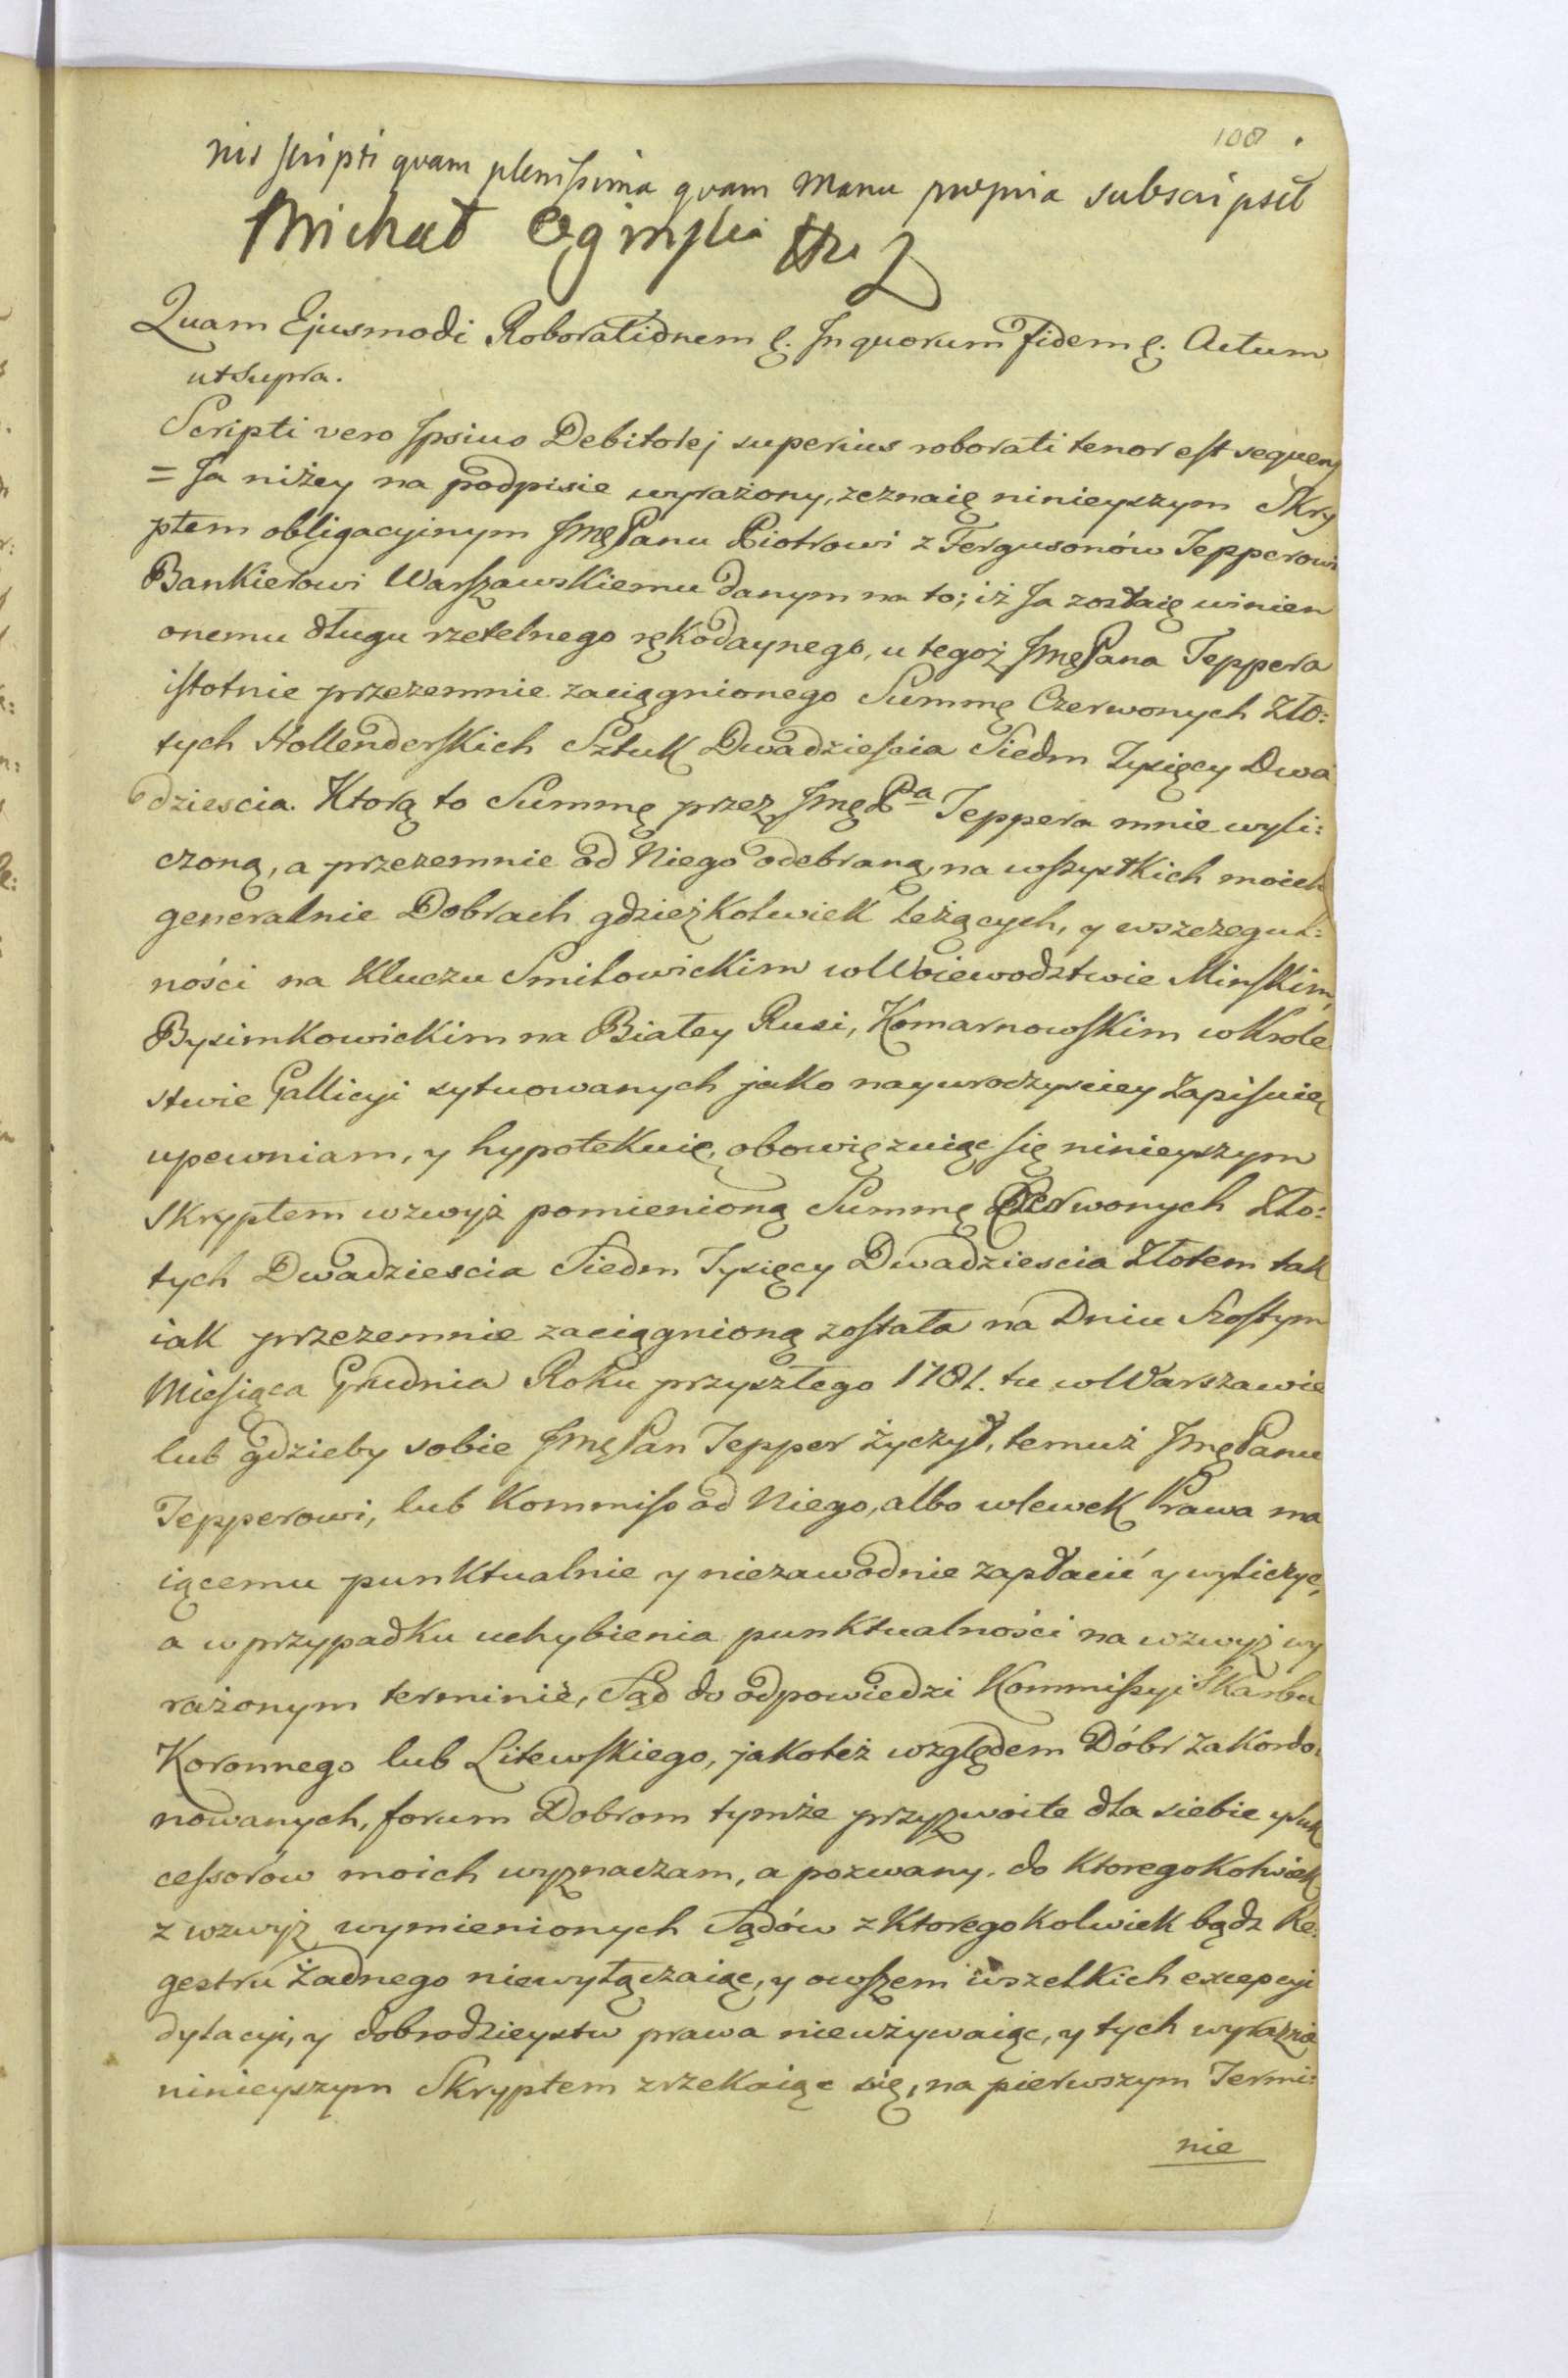 108
nis scripti quam plenissima quam manu propria subscripsit
Michał Ogińsky
Quam Ejusmodi Roborationem &. In quorum Fidem &. Actum
ut Supra.
Scripti vero Ipsius Debitorej superius roborati tenor est sequens
= Ja niżey na podpisie wyrażony, zeznaię ninieyszym Skry
ptem obligacyjnym Jmę Panu Piotrowi z Fergusonów Tepperowi
Bankierowi Warszawskiemu danym na to; iż Ja zostaię winien
onemu długu rzetelnego rękodaynego, u tegoż Jmę Pana Teppera
istotnie przezemnie zaciągnionego Summę Czerwonych Zło:
tych Hollenderskich Sztuk Dwadziescia Siedm Tysięcy Dwa
dziescia. Ktorą to Summę przez Jmę Pa Teppera mnie wyli:
czoną, a przezemnie od Niego odebraną, na wszystkich moich
generalnie Dobrach gdzieżkolwiek leżących, y wszczegul:
ności na Kluczu Smiłowickim w Woiewodztwie Minskim,
Byszimkowickim na Białey Rusi, Komarnowskim w Krole
stwie Gallicyi sytuowanych jako nayuroczysciey Zapisuię
upewniam, y hypotekuię, obowięzuiąc się ninieyszym
Skryptem wzwyż pomienioną Summę Czerwonych Zło:
tych Dwadziescia Siedm Tysięcy Dwadziescia Złotem tak
iak przezemnie zaciągnioną została na Dniu Szostym
Miesiąca Grudnia Roku przyszłego 1781. tu w Warszawie
lub gdzieby sobie Jmę Pan Tepper życzył, temuż Jmę Panu
Tepperowi, lub Kommiss od Niego, albo wlewek Prawa ma
iącemu punktualnie y niezawodnie zapłacić y wyliczyc,
a w przypadku uchybienia punktualności na wzwyż wy
rażonym terminie, Sąd do odpowiedzi Kommissyi Skarbu
Koronnego lub Litewskiego, jakoteż względem Dóbr zakordo:
nowanych, forum Dobrom tymże przyzwoite dla siebie y Suk
cessorow moich wyznaczam, a pozwany do ktoregokolwiek
z wzwyż wymienionych Sądów z ktoregokolwiek bądz Re:
gestru żadnego niewyłączaiąc, y owszem wszelkich excepcyi
dylacyi, y dobrodzieystw prawa nieużywaiąc, y tych wyraznie
ninieyszym Skryptem zrzekaiąc się, na pierwszym Termi:
nie